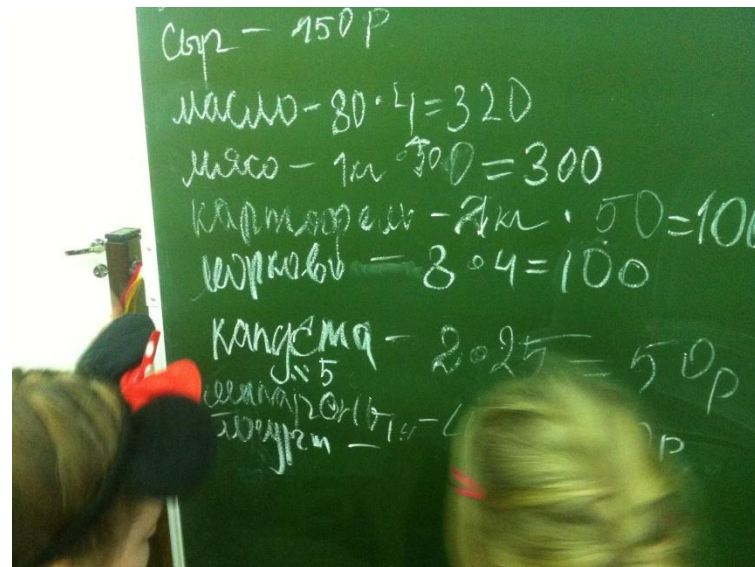 сыр - 150 р
масло - 80 · 4 = 320
мясо - 1кг · 300 = 300
картофель - 2кг · 50 = 100
морковь - 8 · 4 = 100
капуста - 2 · 25 = 50р
5
макароны
йогурт - р